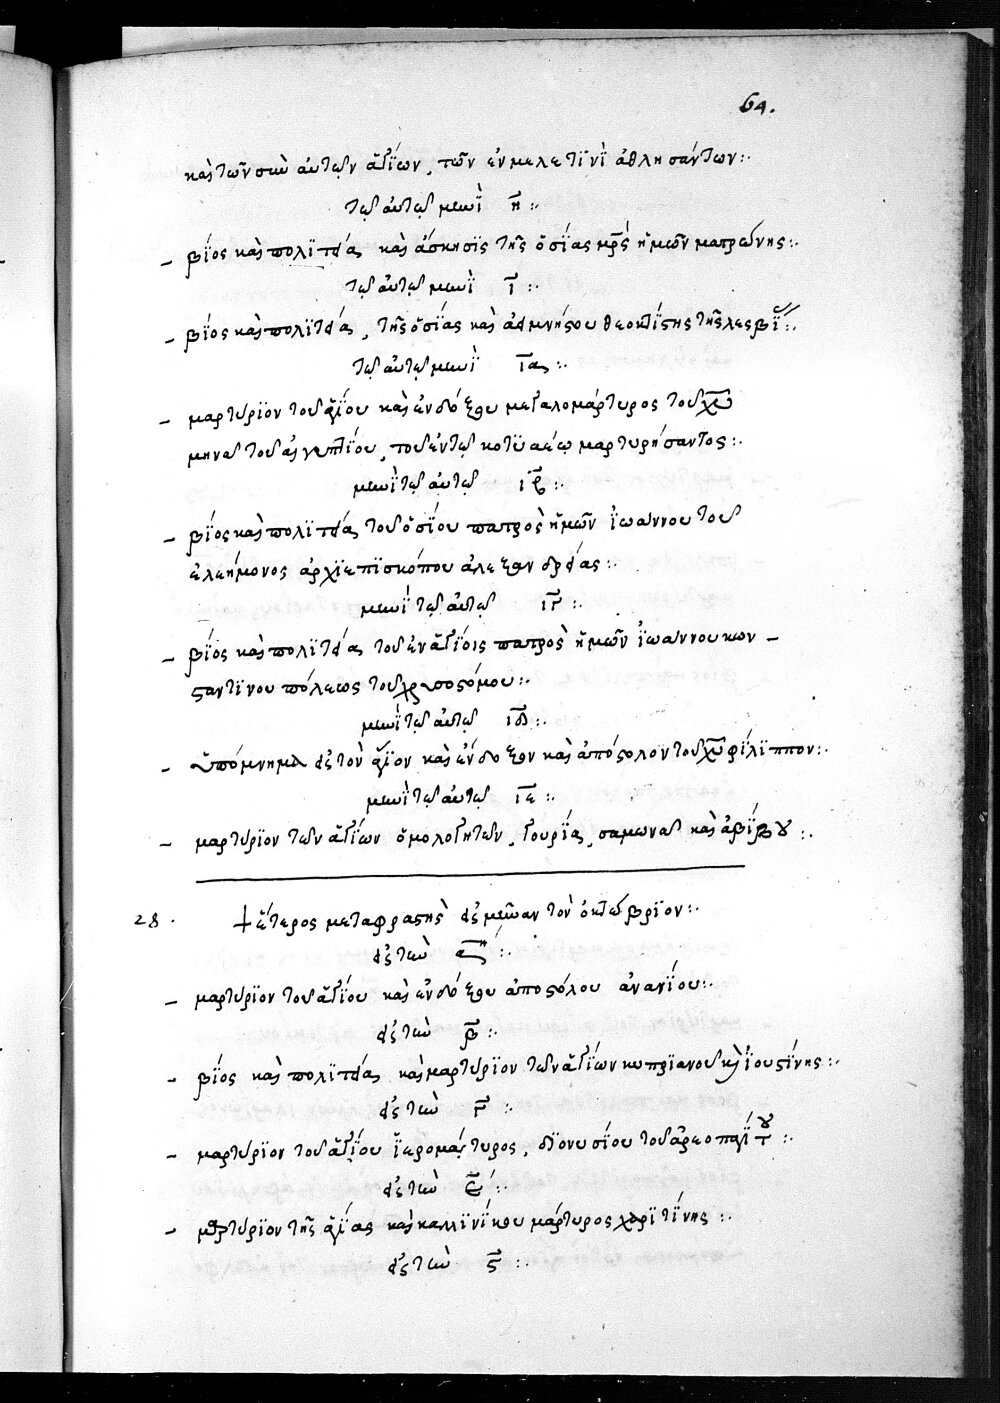 64.
καὶ τῶν σὺν αὐτῶν ἁγΐων, τῶν ἐν μελετϊνὶ ἀθλησάντων:·
τῷ αὐτῷ μηνὶ η̅:·
– βΐος καὶ πολϊτεία, καὶ ἄσκησϊς τῆς ὁσΐας μρ̅ς ἡμῶν ματρώνης:·
τῷ αὐτῷ μηνὶ ι̅:·
– βΐος καὶ πολϊτεία, τῆς ὁσΐας καὶ ἀειμνήσου θεοκτΐστης τῆς λεσβΐ:·
τῷ αὐτῷ μηνὶ ι̅α̅:·
– μαρτύρϊον τοῦ ἁγΐου καὶ ἐνδόξου μεγαλομάρτυρος τοῦ χ̅υ̅
μηνᾶ τοῦ αἰγυπτΐου, τοῦ ἐν τῷ κοτϋαείῳ μαρτυρήσαντος:·
μηνὶ τῷ αὐτῷ ι̅β̅:·
– βΐος καὶ πολϊτεία, τοῦ ὁσΐου πατρὸς ἡμῶν ἰωάννου τοῦ
ἐλεήμονος ἀρχϊεπϊσκόπου ἀλεξανδρείας:·
μηνὶ τῷ αὐτῷ ι̅γ̅:·
– βΐος καὶ πολϊτεία, τοῦ ἐν ἁγΐοις πατρὸς ἡμῶν ἰωάννου κων –
σταντϊνουπόλεως τοῦ χρυσοστόμου:·
μηνὶ τῷ αὐτῷ ι̅δ̅:·
– ὑπόμνημα εἰς τὸν ἅγϊον καὶ ἔνδοξον καὶ ἀπόστολον τοῦ χ̅υ̅ φΐλϊππον:·
μηνὶ τῷ αὐτῷ ι̅ε̅:·
– μαρτύρϊον τῶν ἁγΐων ὁμολογητῶν, γουρΐα, σαμωνᾶ καὶ ἀβΐβου:·
28. † ἕτερος μεταφραστὴς εἰς μῆναν τὸν ὀκτώβρϊον:·
εἰς τὴν α̅η:·
– μαρτύρϊον τοῦ ἁγΐου καὶ ἐνδόξου ἀποστόλου ἀνανΐου:·
εἰς τὴν β̅:·
– βΐος καὶ πολϊτεία, καὶ μαρτύρϊον τῶν ἁγΐων κυπρϊανοῦ κὶ ἰουστΐνης:·
εἰς τὴν γ̅:·
– μαρτύρϊον τοῦ ἁγΐου ἱερομάρτυρος, δϊονυσΐου τοῦ ἀρεοπαγΐτου:·
εἰς τὴν ε̅:·
– μαρτύρϊον τῆς ἁγΐας καὶ καλλϊνΐκου μάρτυρος χαρϊτΐνης:·
εἰς τὴν ϛ̅:·